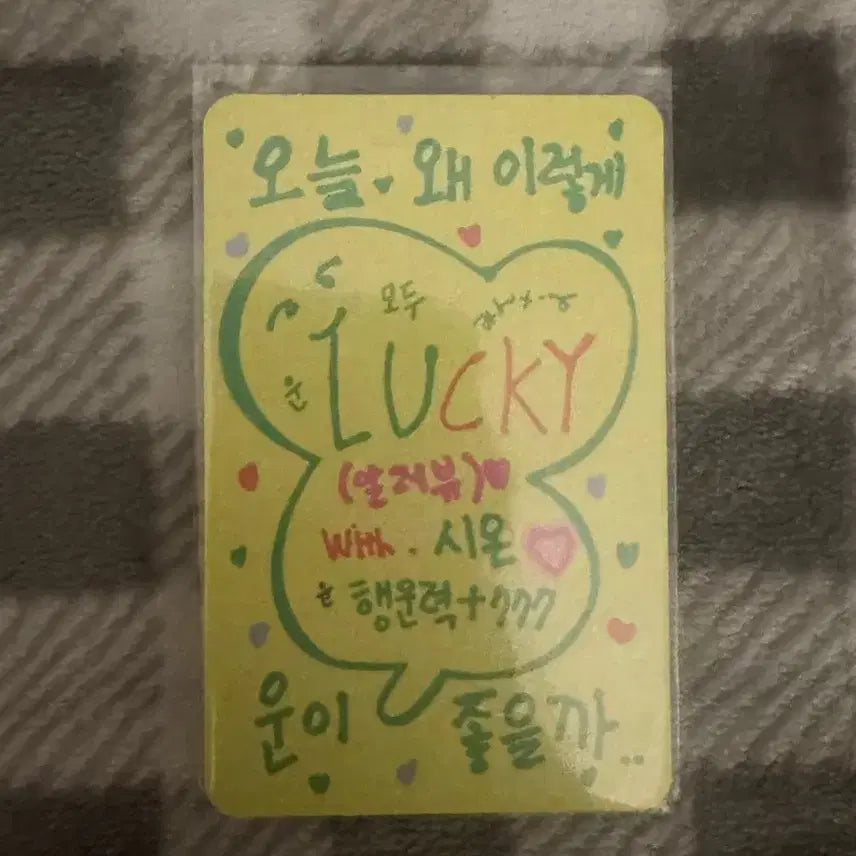 오늘 왜 이렇게
모두
운
LUCKY
(알러뷰)
With. 시온
운 행운력+777
운이 좋을까..